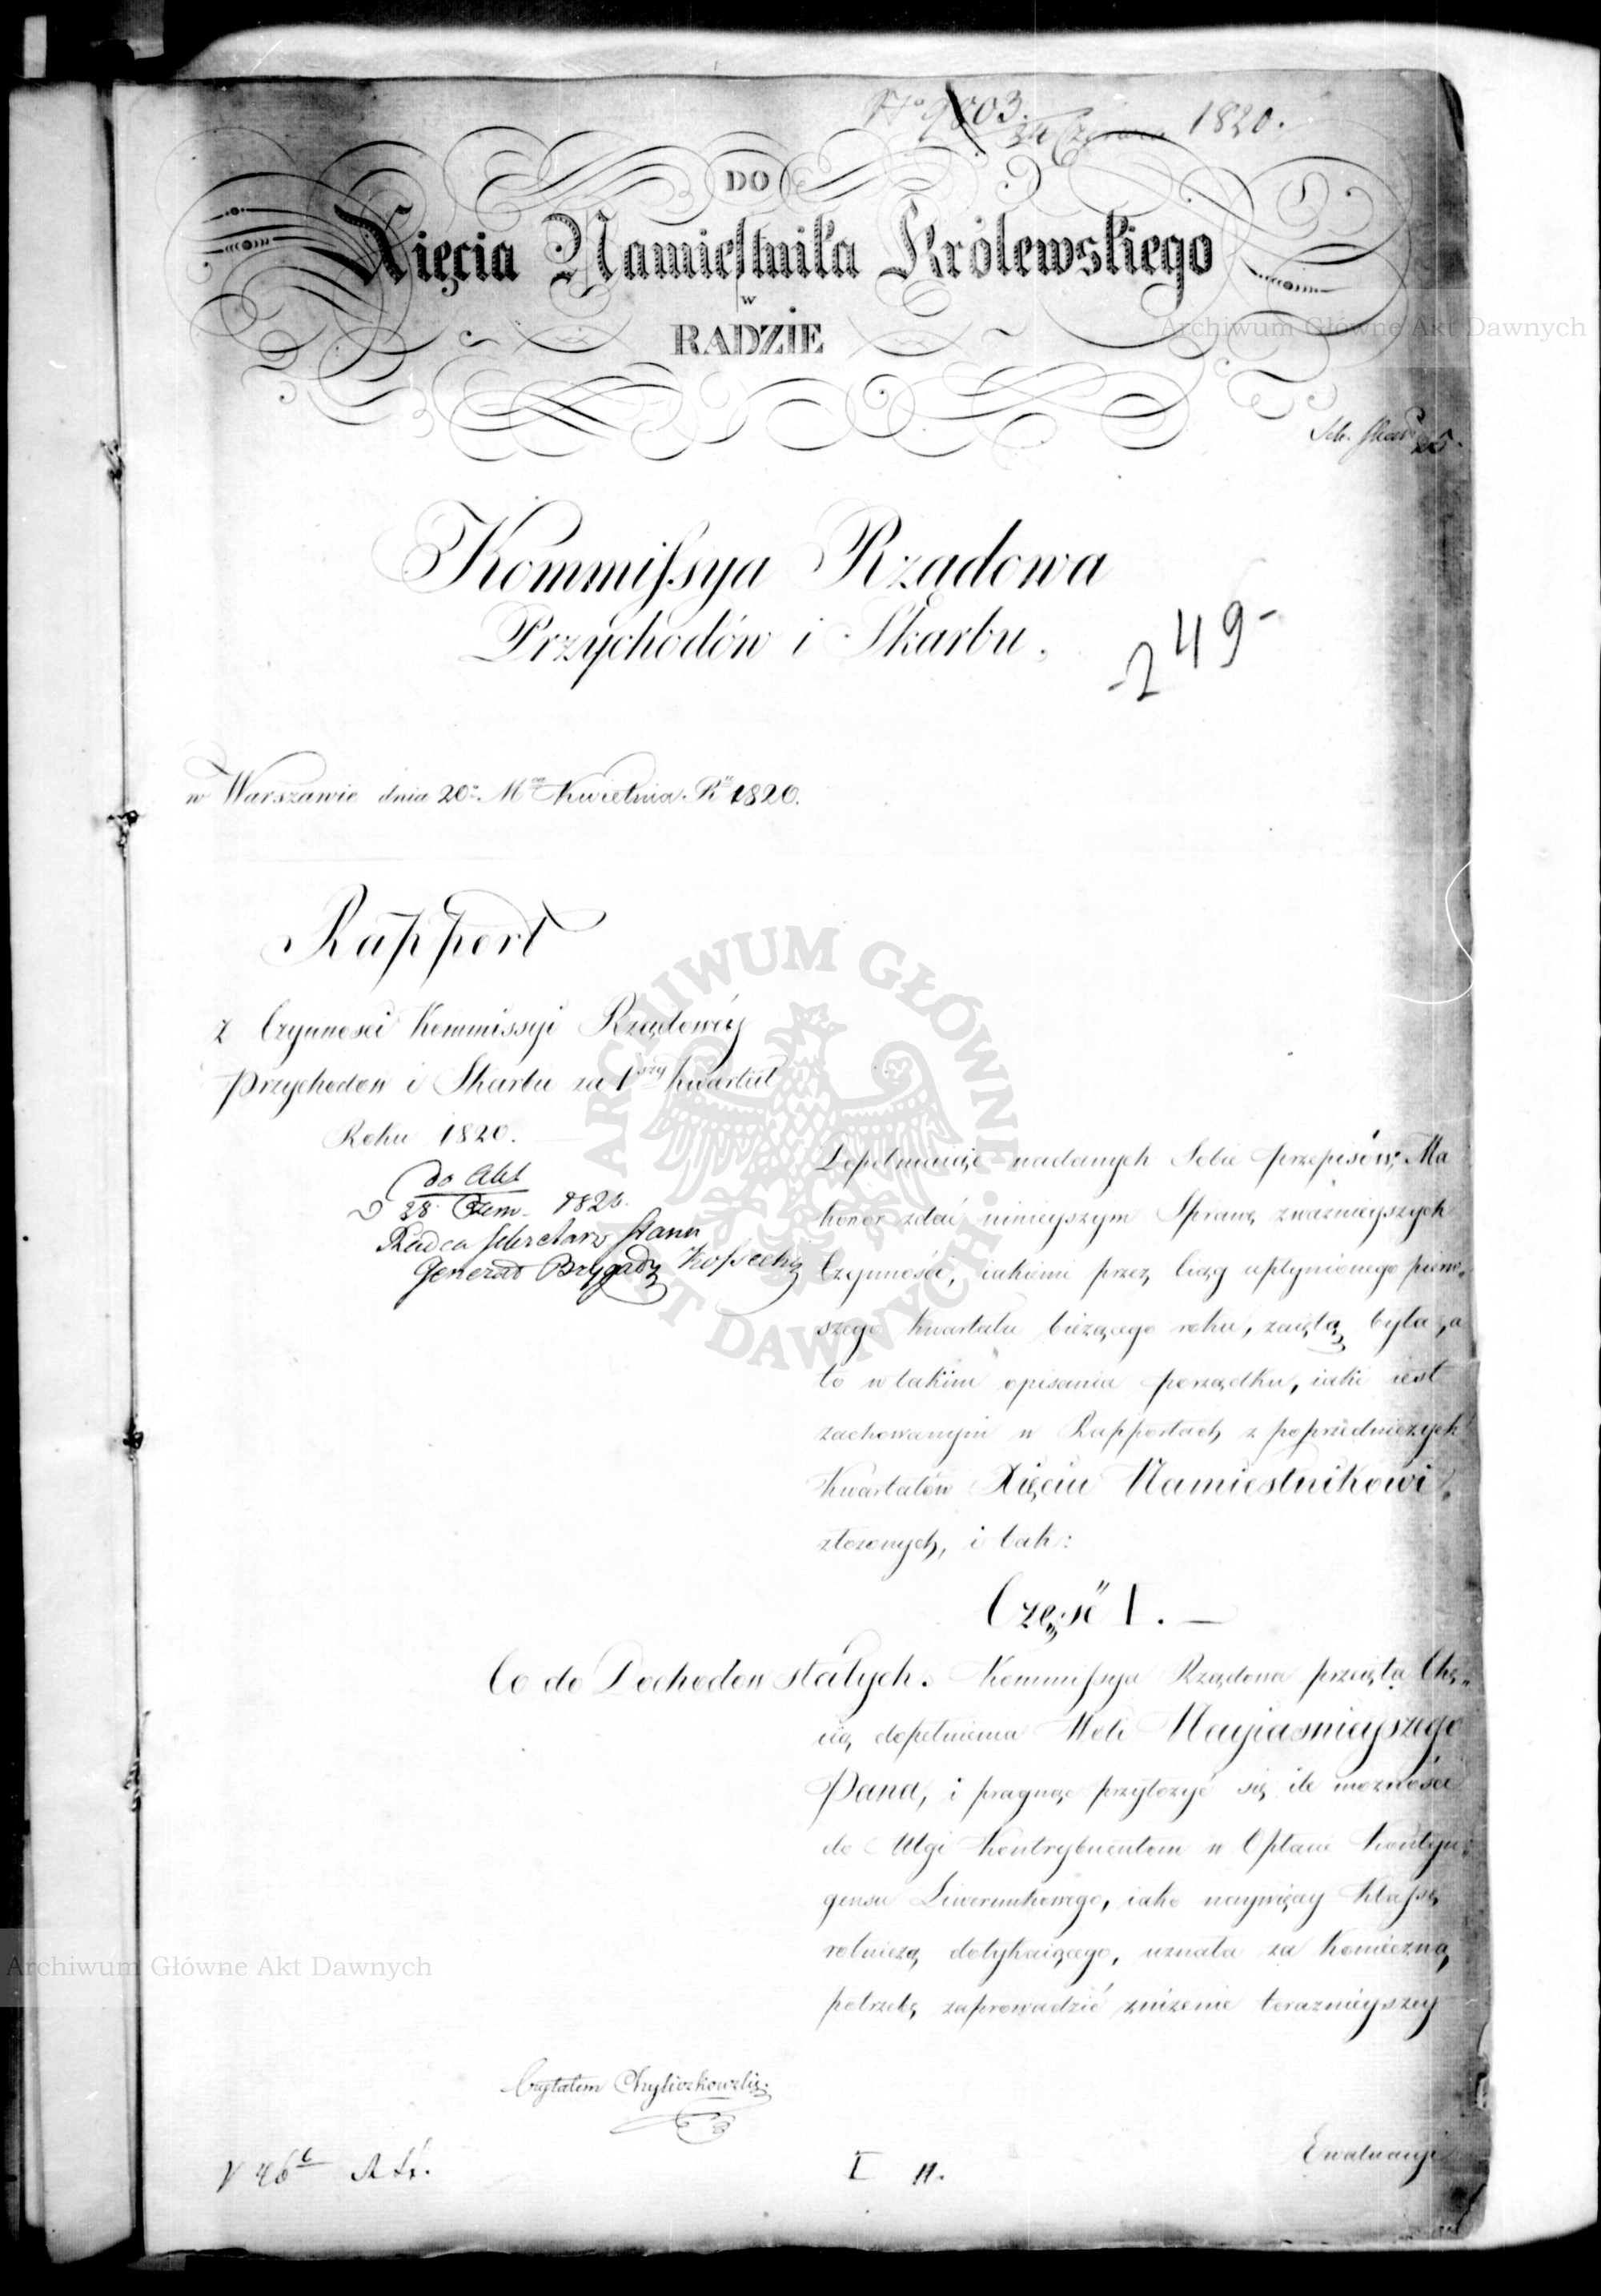 No 9803.
24 Czerwca 1820.
DO
Xięcia Namiestnika Królewskiego
w
RADZIE
Archiwum Główne Akt Dawnych
25.
Kommissya Rządowa
Przychodów i Skarbu.
-249-
w Warszawie dnia 20o Mca Kwietnia Ru 1820.
Rapport
z Czynności Kommissyi Rządowéy
Przychodow i Skarbu za 1szy kwartał
Roku 1820.
do Akt
D 28 Czerw. 1820.
Radca Sekretarz Stanu
Generał Brygady Kossecki
ARCHIWUM GŁÓWNE AKT DAWNYCH
Dopełniaiąc nadanych Sobie przepisów, Ma
honor zdać ninieyszym Sprawę zważnieyszych
Czynności, iakiemi przez Ciąg upłynionego pierw„
szego kwartału bieżącego roku, zaiętą była, a
to w takim opisania porządku, iaki iest
zachowanym w Rapportach z poprzedniczych
kwartałów Xięciu Namiestnikowi
złożonych, i tak:
Część I.
Co do Dochodow stałych. Kommissya Rządowa przeięta Chę„
cią dopełnienia Woli Nayiaśnieyszego
Pana, i pragnąc przyłożyć się ile możności
do Ulgi Kontrybuentom w Opłacie Kontyn„
gensu Liwerunkowego, iako naywięcy Klassę
rolniczą dotykaiącego, uznała za konieczną
potrzebę zaprowadzić zniżenie teraznieyszey
Archiwum Główne Akt Dawnych
Czytałem Chyliczkowski
Ewaluacyi
V 46
I 11.